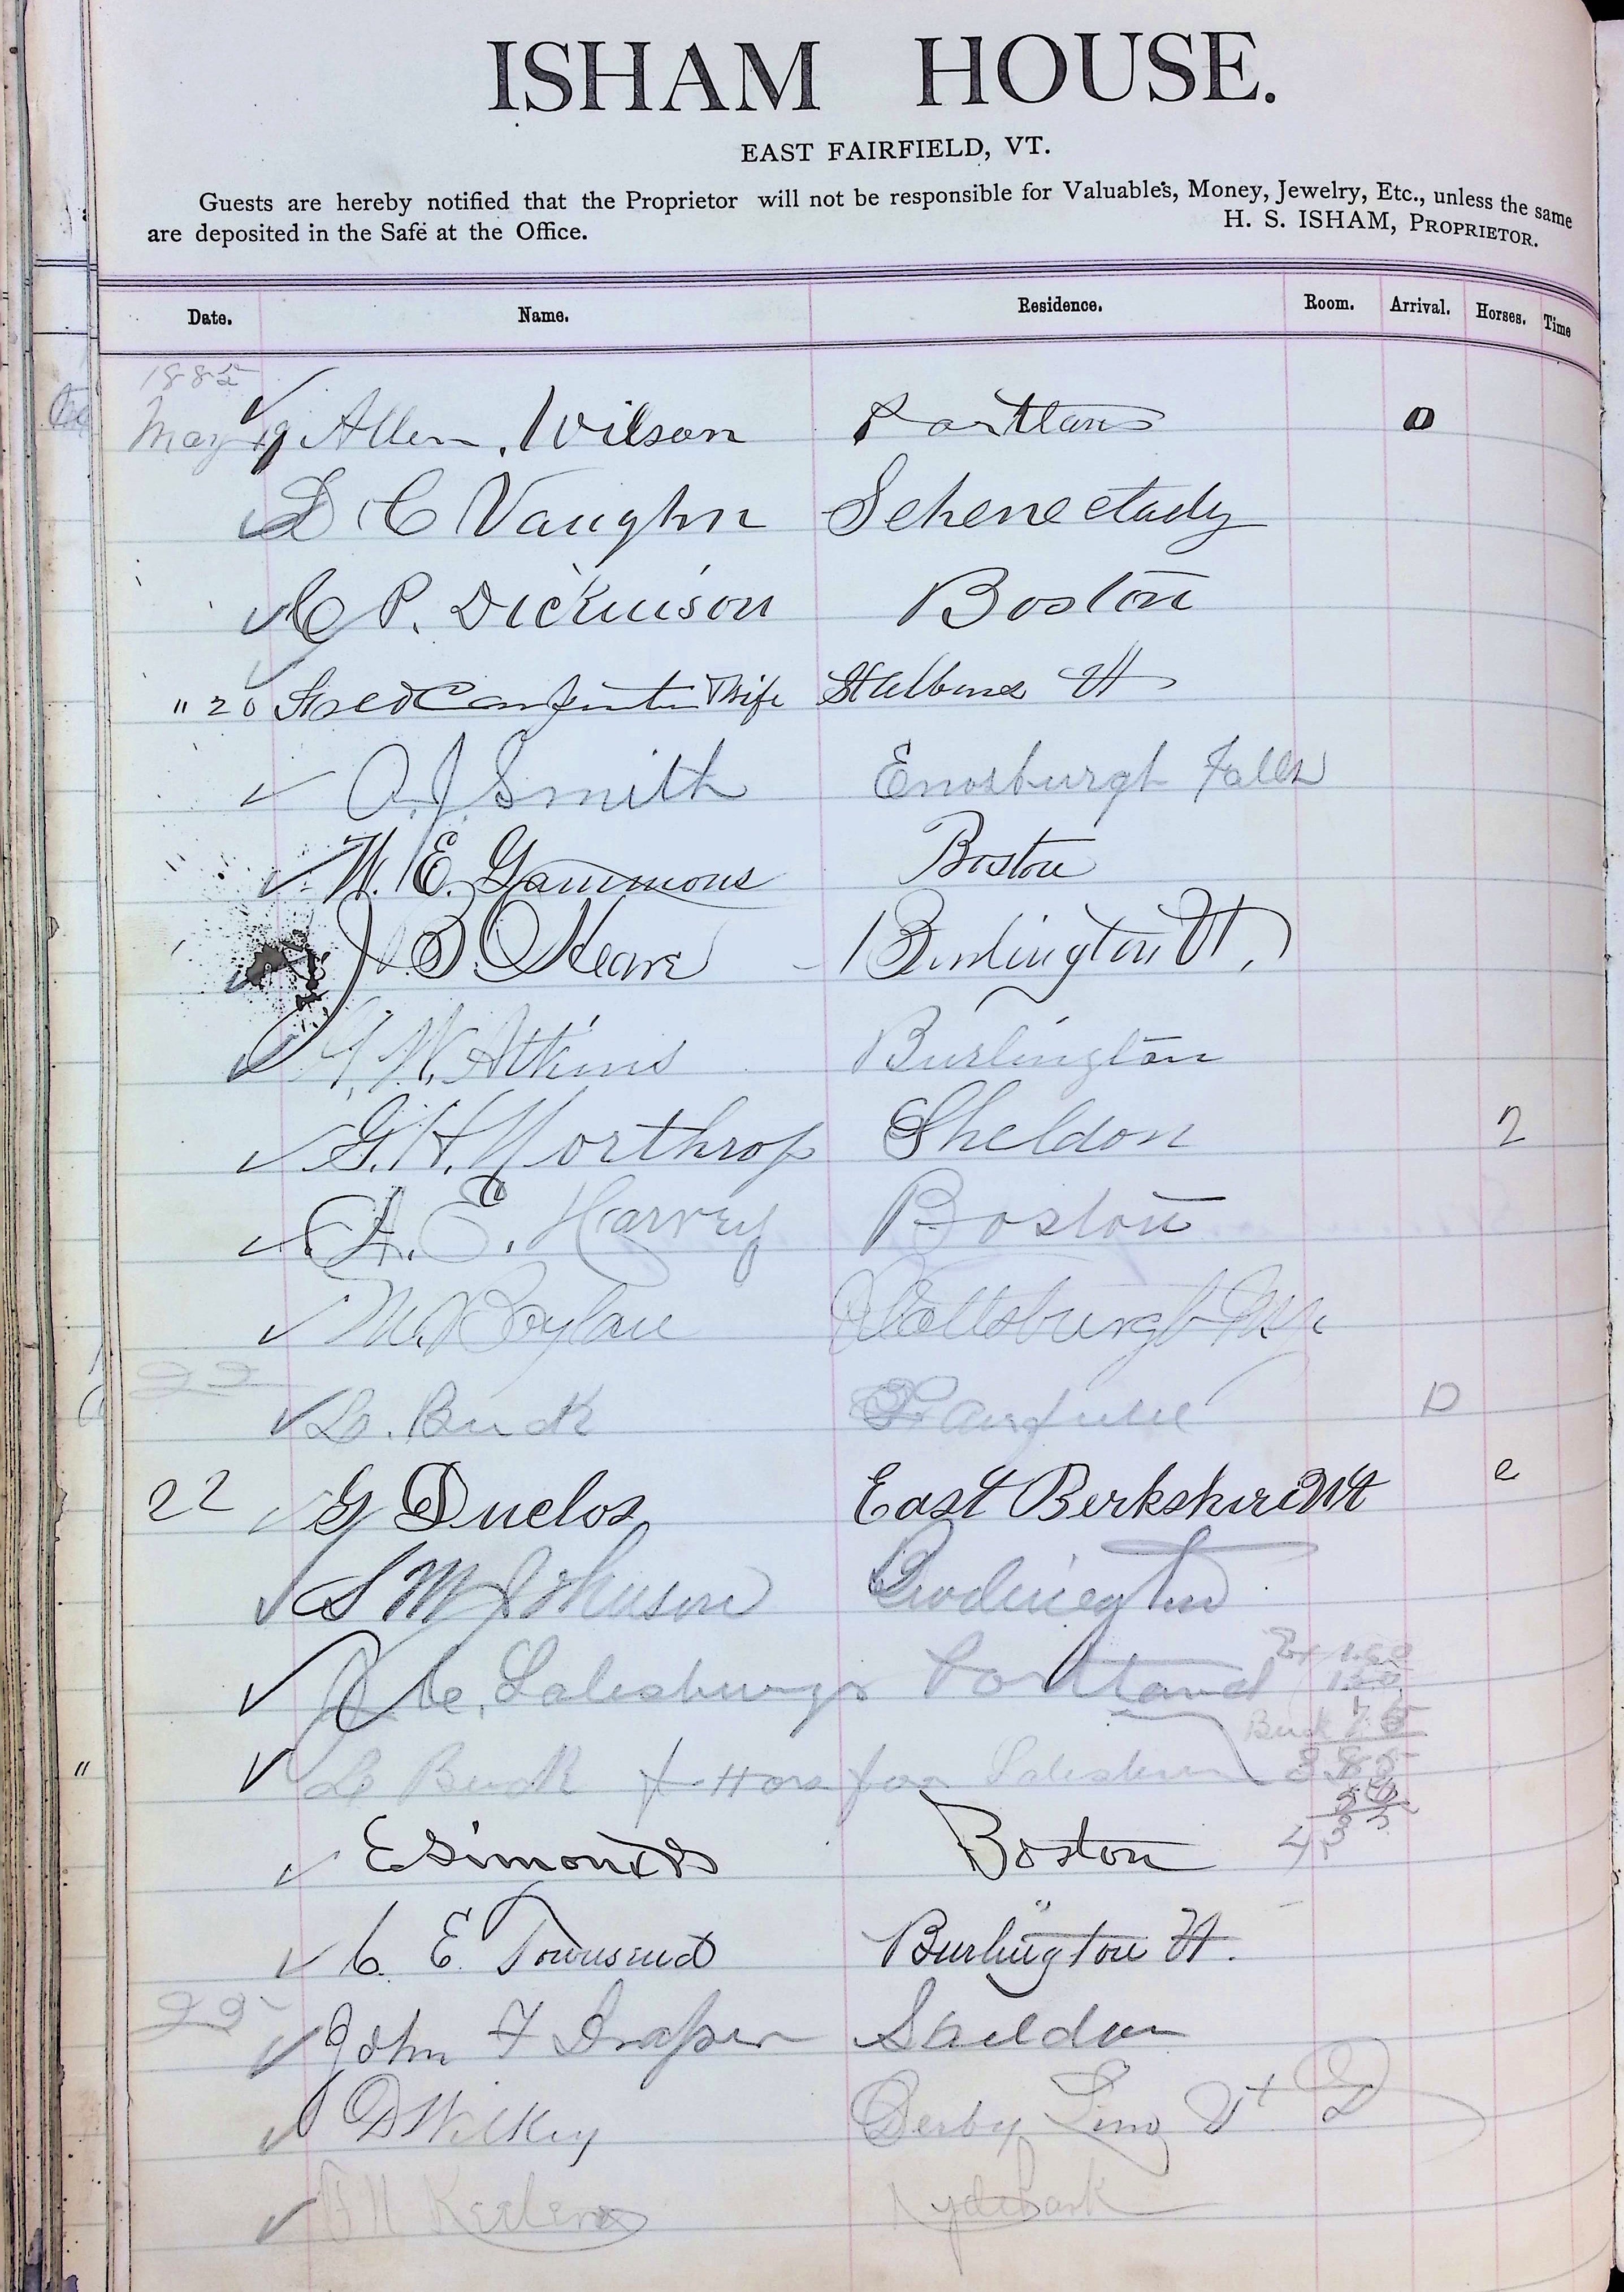 ISHAM HOUSE.
EAST FAIRFIELD, VT.
Guests are hereby notified that the Proprietor will not be responsible for Valuables, Money, Jewelry, Etc., unless the same
are deposited in the Safe at the Office. H. S. ISHAM, PROPRIETOR.
Date. Name. Residence. Room. Arrival. Horses. Time
1885
May 19 Allen Wilson Portland
D C Vaughn Schenectady
C P. Dickinson Boston
" 20 Fred Carpenter & Wife St Albans Vt
O. J. Smith Enosburgh Falls
W. E. Gammons Boston
J B. O'Kane Burlington Vt,
W. Atkins Burlington
G. H. Northrop Sheldon 2
A. E. Harvey Boston
M. Boylan Plattsburgh N.Y.
22
Buck D
22 G Duclos East Berkshire Vt 2
S M Johnson Burlington
Salesburys Portland
Buck 75
Buck & Hors for 3 85
50
4 35
E Simonds Boston
C. E. Townsend Burlington Vt.
John F Draper Sheldon
D Wilkey Derby Line Vt D
Hydepark